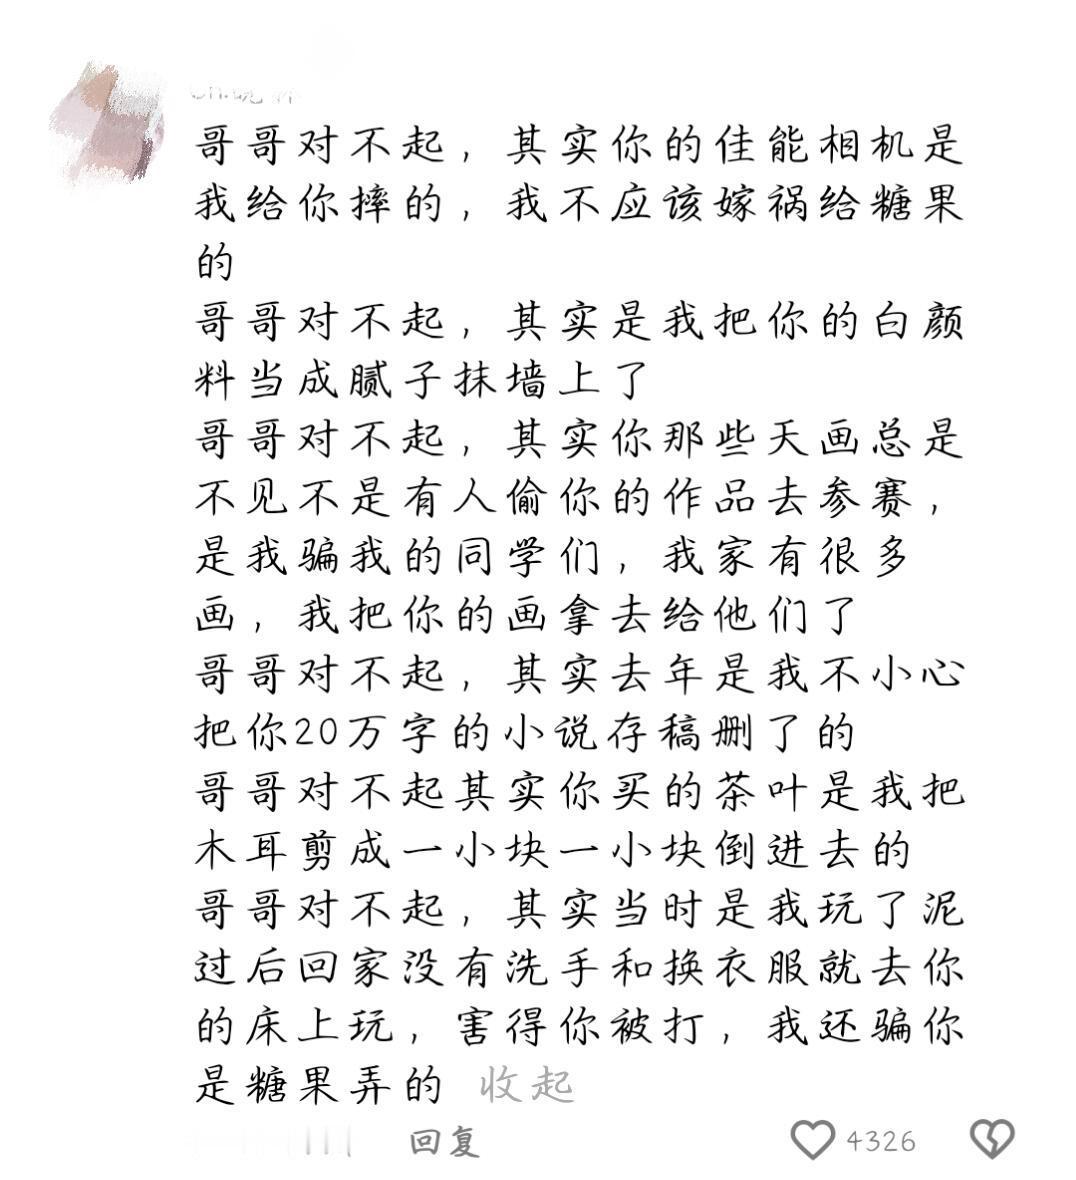 哥哥对不起，其实你的佳能相机是
我给你摔的，我不应该嫁祸给糖果
的
哥哥对不起，其实是我把你的白颜
料当成腻子抹墙上了
哥哥对不起，其实你那些天画总是
不见不是有人偷你的作品去参赛，
是我骗我的同学们，我家有很多
画，我把你的画拿去给他们了
哥哥对不起，其实去年是我不小心
把你20万字的小说存稿删了的
哥哥对不起其实你买的茶叶是我把
木耳剪成一小块一小块倒进去的
哥哥对不起，其实当时是我玩了泥
过后回家没有洗手和换衣服就去你
的床上玩，害得你被打，我还骗你
是糖果弄的 收起
回复 4326